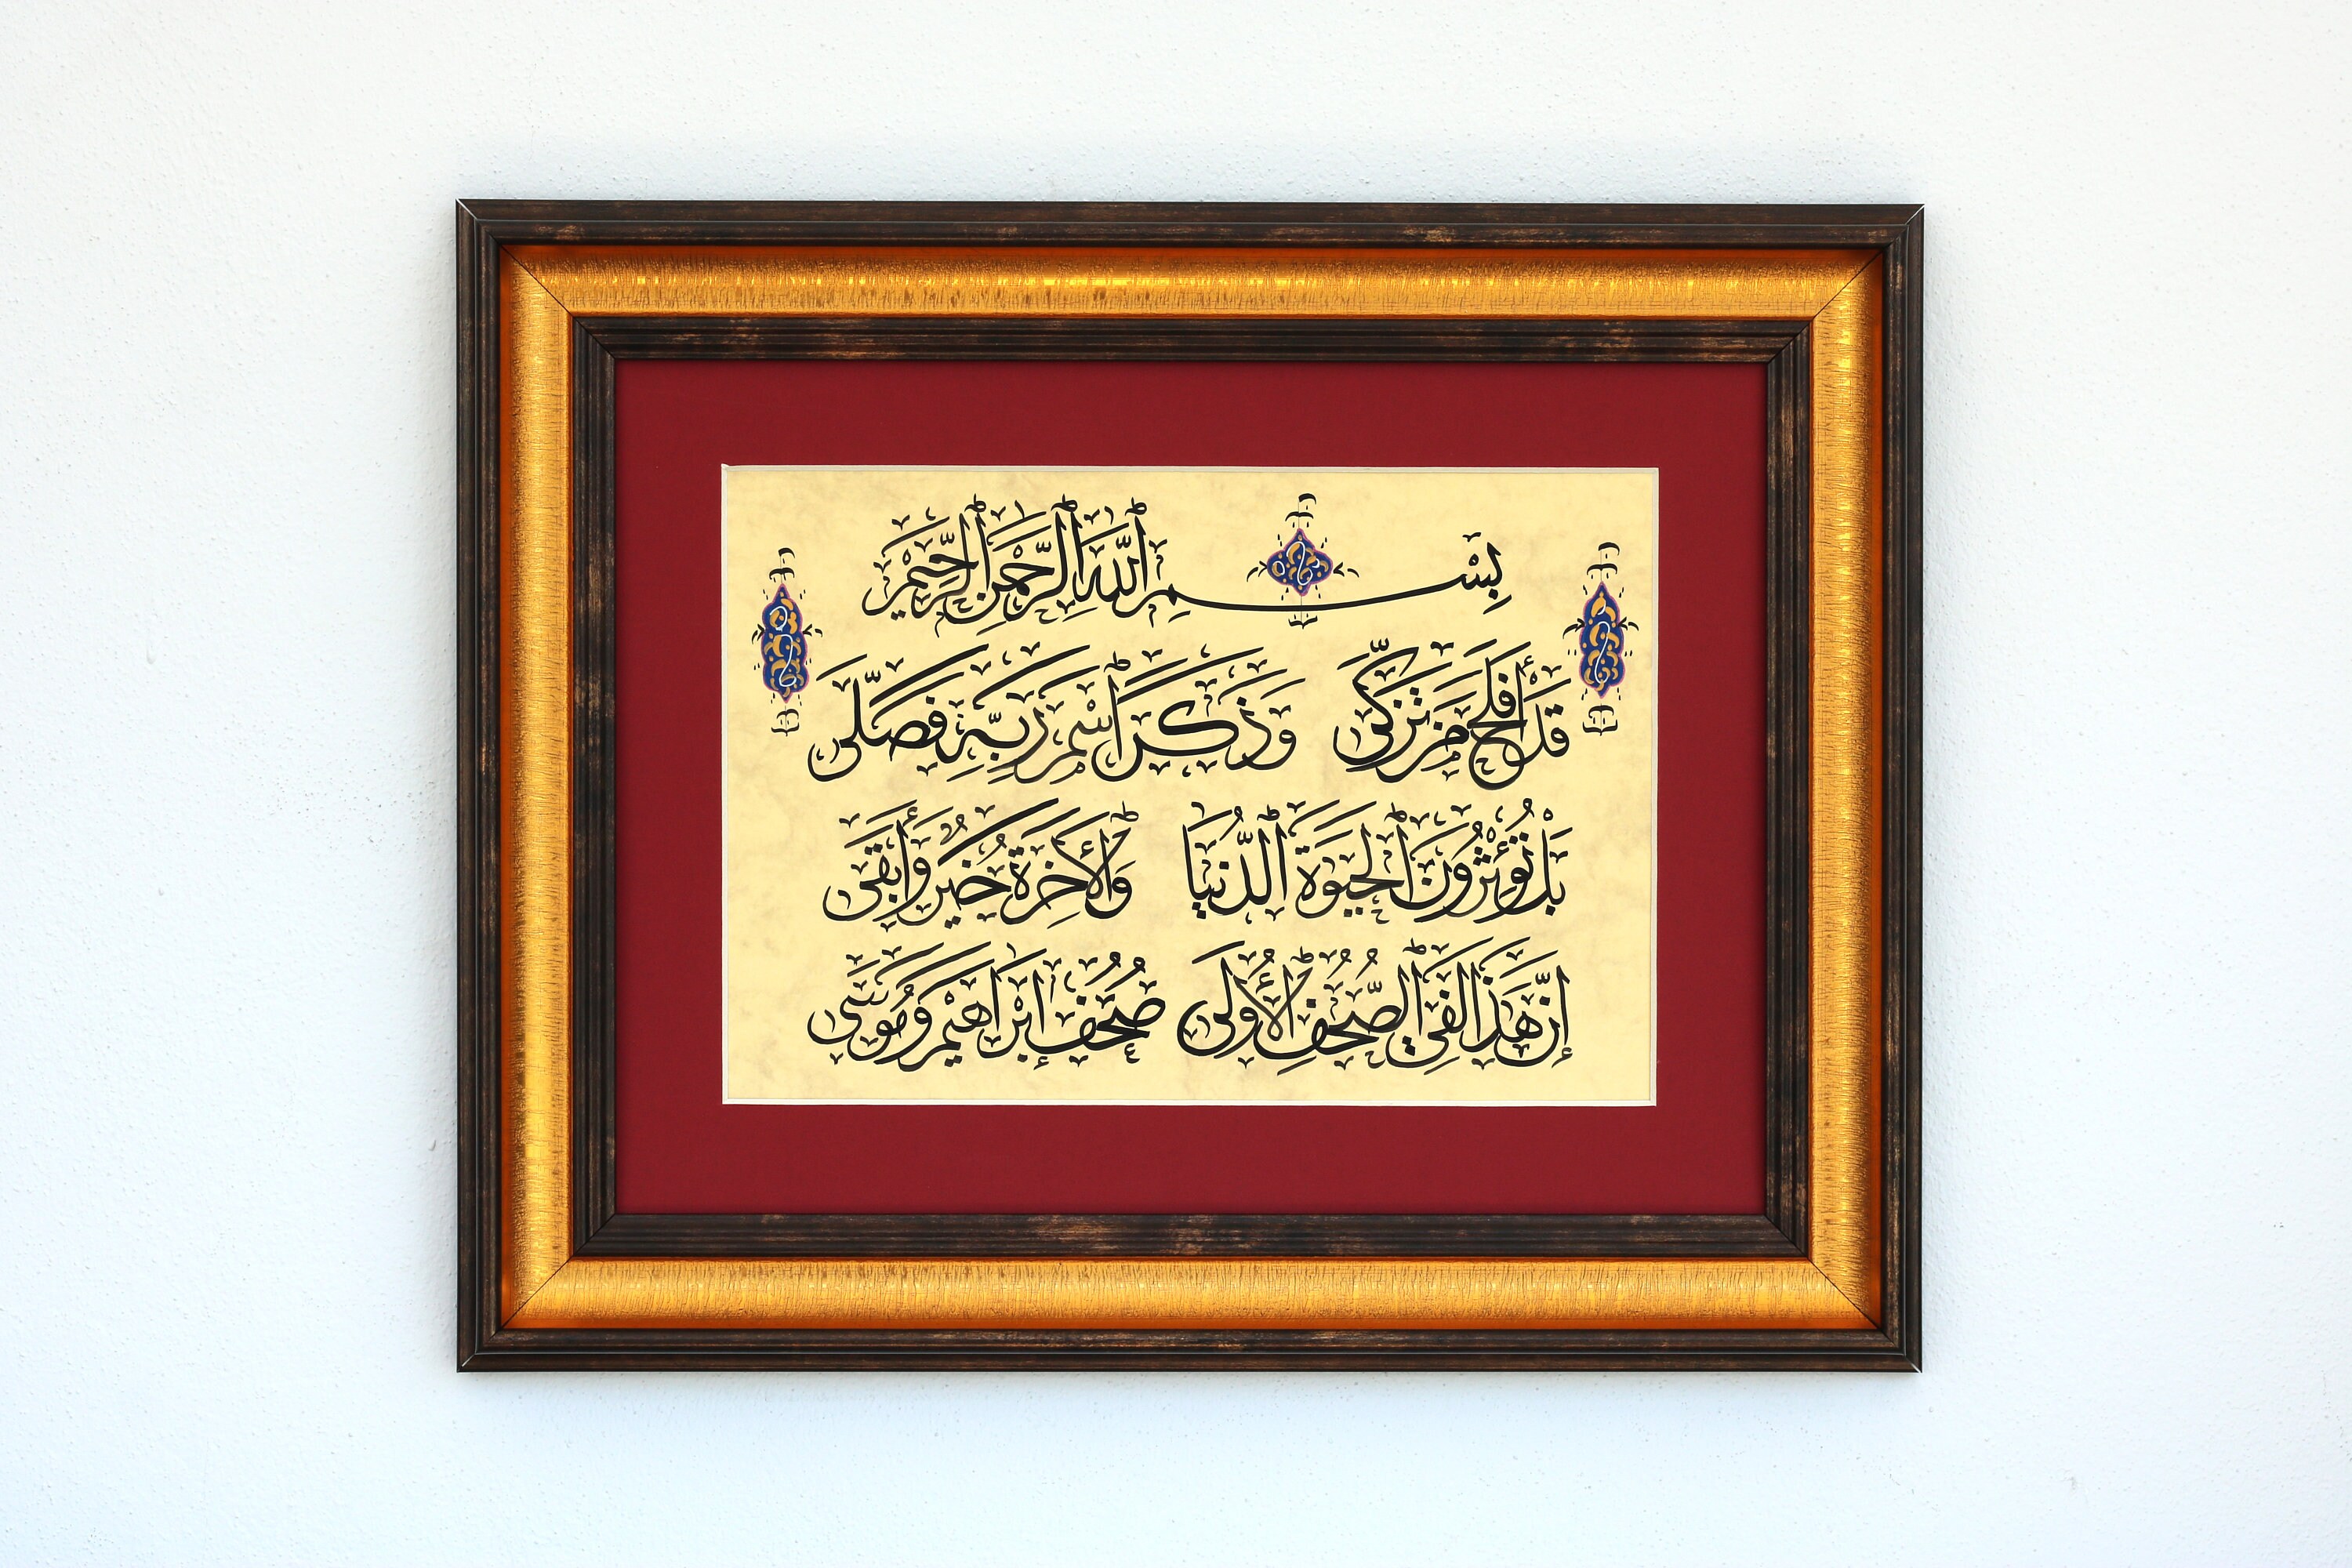 بِسْمِ ٱللَّهِ ٱلرَّحْمَٰنِ ٱلرَّحِيمِ
قَدْ أَفْلَحَ مَن تَزَكَّىٰ وَذَكَرَ ٱسْمَ رَبِّهِ فَصَلَّىٰ
بَلْ تُؤْثِرُونَ ٱلْحَيَوٰةَ ٱلدُّنْيَا وَٱلْأَخِرَةُ خَيْرٌ وَأَبْقَىٰ
إِنَّ هَٰذَا لَفِى ٱلصُّحُفِ ٱلْأُولَىٰ صُحُفِ إِبْرَاهِيمَ وَمُوسَىٰ